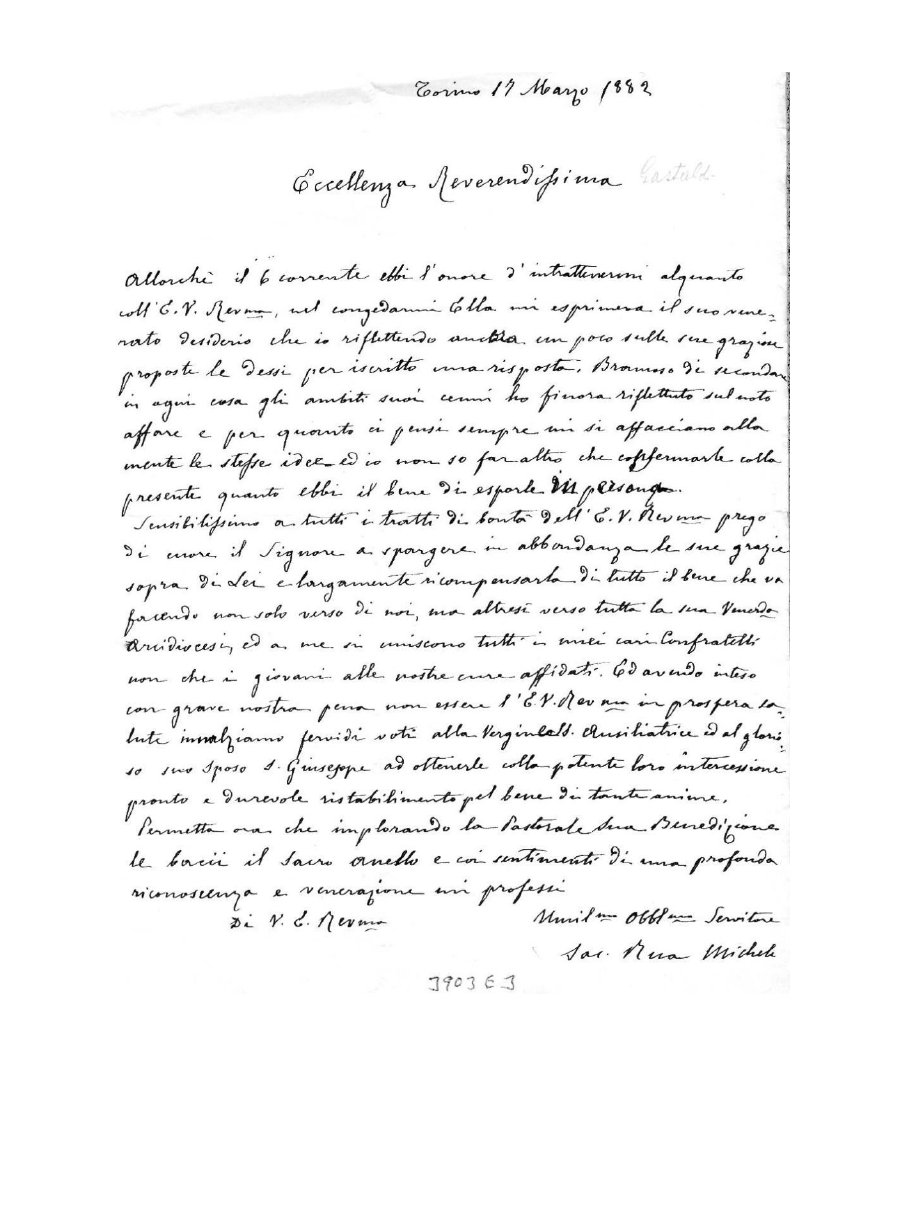 Torino 17 Marzo 1882
Eccellenza Reverendissima Gastald.
Allorchè il 6 corrente ebbi l'onore d'intrattenermi alquanto
coll'E.V. Revma, nel congedarmi Ella mi esprimeva il suo vene-
rato desiderio che io riflettendo ancora un poco sulle sue graziose
proposte le dessi per iscritto una risposta. Bramoso di secondare
in ogni cosa gli ambiti suoi cenni ho finora riflettuto sul noto
affare e per quanto ci pensi sempre mi si affacciano alla
mente le stesse idee ed io non so far altro che confermarle colla
presente quanto ebbi il bene di esporle in persona.
Sensibilissimo a tutti i tratti di bontà dell'E.V. Revma prego
di cuore il Signore a spargere in abbondanza le sue grazie
sopra di Lei e largamente ricompensarla di tutto il bene che va
facendo non solo verso di noi, ma altresì verso tutta la sua Venerda
Arcidiocesi, ed a me si uniscono tutti i miei cari Confratelli
non che i giovani alle nostre cure affidati. Ed avendo inteso
con grave nostra pena non essere l'E.V. Revma in prospera sa-
lute innalziamo fervidi voti alla Vergine SS. Ausiliatrice ed al glorio-
so suo Sposo S. Giuseppe ad ottenerle colla potente loro intercessione
pronto e durevole ristabilimento pel bene di tante anime.
Permetta ora che implorando la Pastorale Sua Benedizione
le bacii il Sacro anello e coi sentimenti di una profonda
riconoscenza e venerazione mi professi
Di V. E. Revma
Umilmo Obblmo Servitore
Sac. Rua Michele
3903 E 3